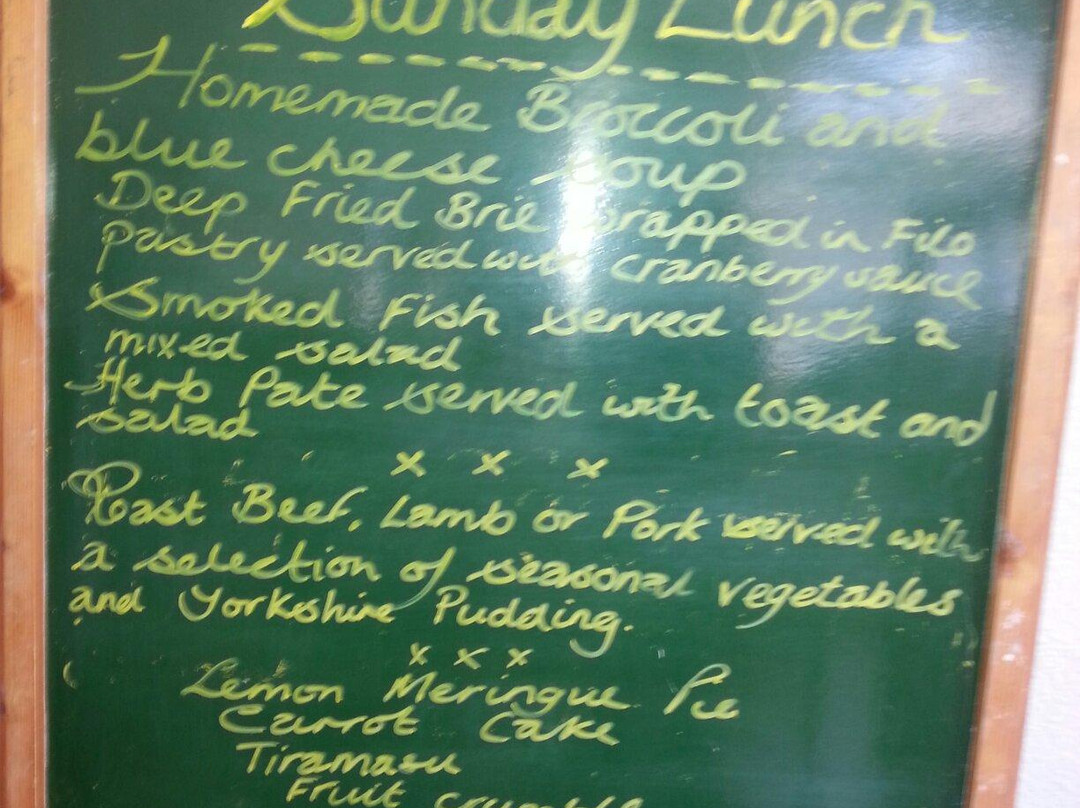 Sunday Lunch
Homemade Broccoli and
blue cheese soup
Deep Fried Brie wrapped in Filo
pastry served with cranberry sauce
Smoked Fish served with a
mixed salad
Herb Pate served with toast and
salad
x x x
Roast Beef, Lamb or Pork served with
a selection of seasonal vegetables
and Yorkshire Pudding.
x x x
Lemon Meringue Pie
Carrot Cake
Tiramasu
Fruit crumble